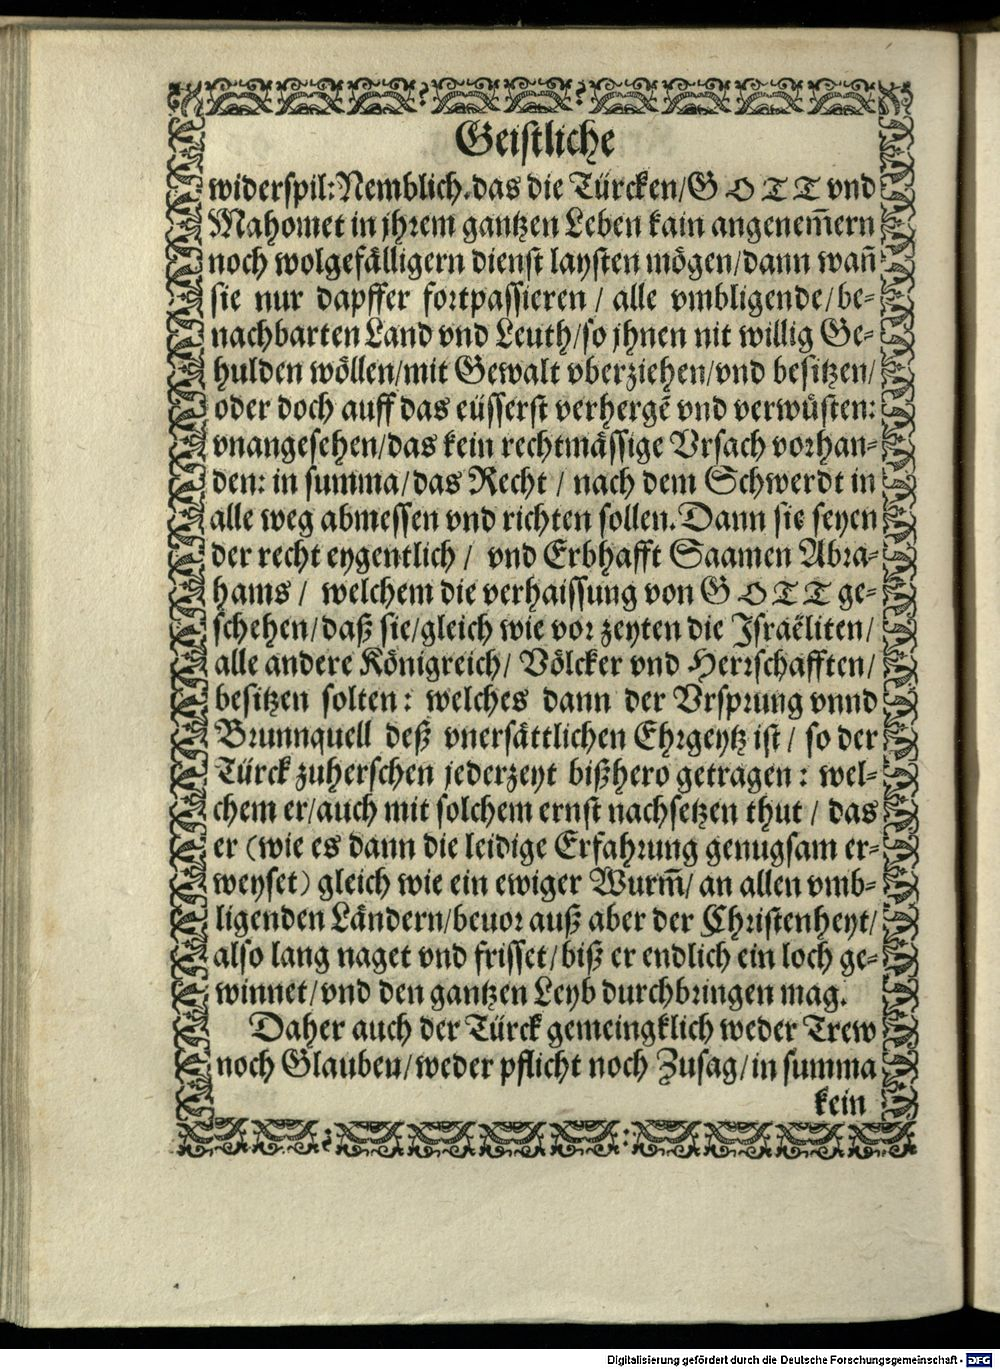 Geistliche
widerspil: Nemblich. das die Türcken/ G O T T vnd
Mahomet in jhrem gantzen Leben kain angenem̄ern
noch wolgefälligern dienst laysten mögen/ dann wan̄
sie nur dapffer fortpassieren / alle vmbligende/ be-
nachbarten Land vnd Leuth/ so jhnen nit willig Ge-
hulden wöllen/ mit Gewalt vberziehen/ vnd besitzen/
oder doch auff das eüsserst verhergē vnd verwüsten:
vnangesehen/ das kein rechtmässige Vrsach vorhan-
den: in summa/ das Recht / nach dem Schwerdt in
alle weg abmessen vnd richten sollen. Dann sie seyen
der recht eygentlich / vnd Erbhafft Saamen Abra-
hams / welchem die verhaissung von G O T T ge-
schehen/ daß sie/ gleich wie vor zeyten die Israëliten/
alle andere Königreich/ Völcker vnd Herrschafften/
besitzen solten : welches dann der Vrsprung vnnd
Brunnquell deß vnersättlichen Ehrgeytz ist / so der
Türck zuherschen jederzeyt bißhero getragen : wel-
chem er/ auch mit solchem ernst nachsetzen thut / das
er (wie es dann die leidige Erfahrung genugsam er-
weyset) gleich wie ein ewiger Wurm̄/ an allen vmb-
ligenden Ländern/ beuor auß aber der Christenheyt/
also lang naget vnd frisset/ biß er endlich ein loch ge-
winnet/ vnd den gantzen Leyb durchbringen mag.
Daher auch der Türck gemeingklich weder Trew
noch Glauben/ weder pflicht noch Zusag/ in summa
kein
Digitalisierung gefördert durch die Deutsche Forschungsgemeinschaft - DFG